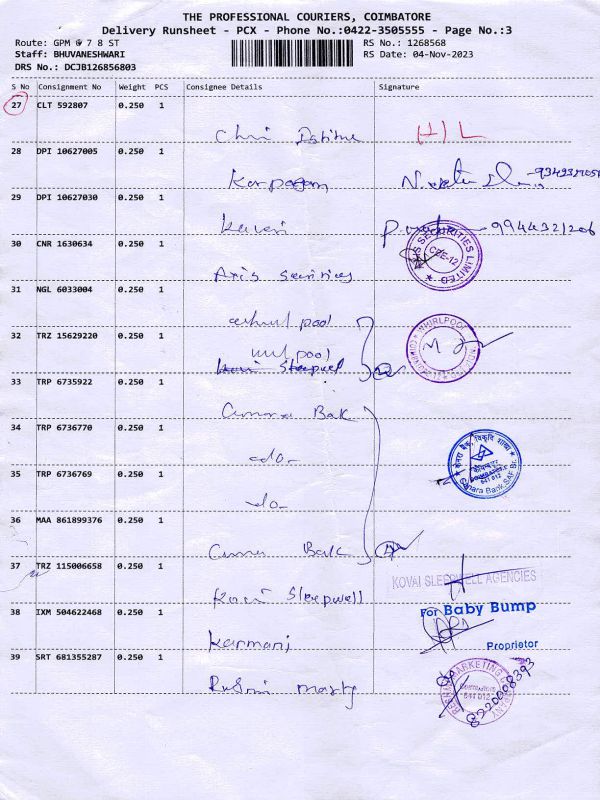 THE PROFESSIONAL COURIERS, COIMBATORE
Delivery Runsheet - PCX - Phone No.:0422-3505555 - Page No.:3
Route: GPM @ 7 8 ST RS No.: 1268568
Staff: BHUVANESHWARI RS Date: 04-Nov-2023
DRS No.: DCJB126856803
S No Consignment No Weight PCS Consignee Details Signature
27 CLT 592807 0.250 1
HIL
28 DPI 10627005 0.250 1
Karpagam
29 DPI 10627030 0.250 1
Kaveri 9944321206
30 CNR 1630634 0.250 1
AXIS SECURITIES LIMITED
CBE-12
Axis
31 NGL 6033004 0.250 1
whirlpool
32 TRZ 15629220 0.250 1
WHIRLPOOL
Sleepwell
33 TRP 6735922 0.250 1
34 TRP 6736770 0.250 1
-do-
केनरा बैंक
641 012
Canara Bank, SAF Br.
35 TRP 6736769 0.250 1
-do-
36 MAA 861899376 0.250 1
37 TRZ 115006658 0.250 1
KOVAI SLEEPWELL AGENCIES
Kovai Sleepwell
For Baby Bump
38 IXM 504622468 0.250 1
Proprietor
39 SRT 681355287 0.250 1
MARKETING COMPANY
641 012
8220008393